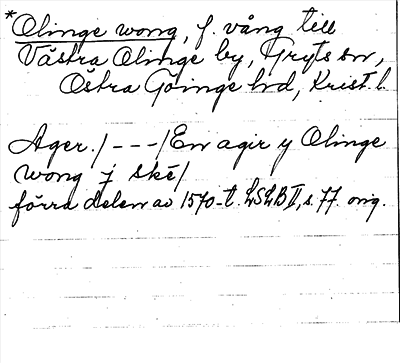 *Olinge wong, f. vång till
Västra Olinge by, Gryts sn,
Östra Göinge hd, Krist. l.
Ager. / - - - / En agir y Olinge
wong j skč /
förra delen av 1570-t. LSLB II, s. 77. orig.